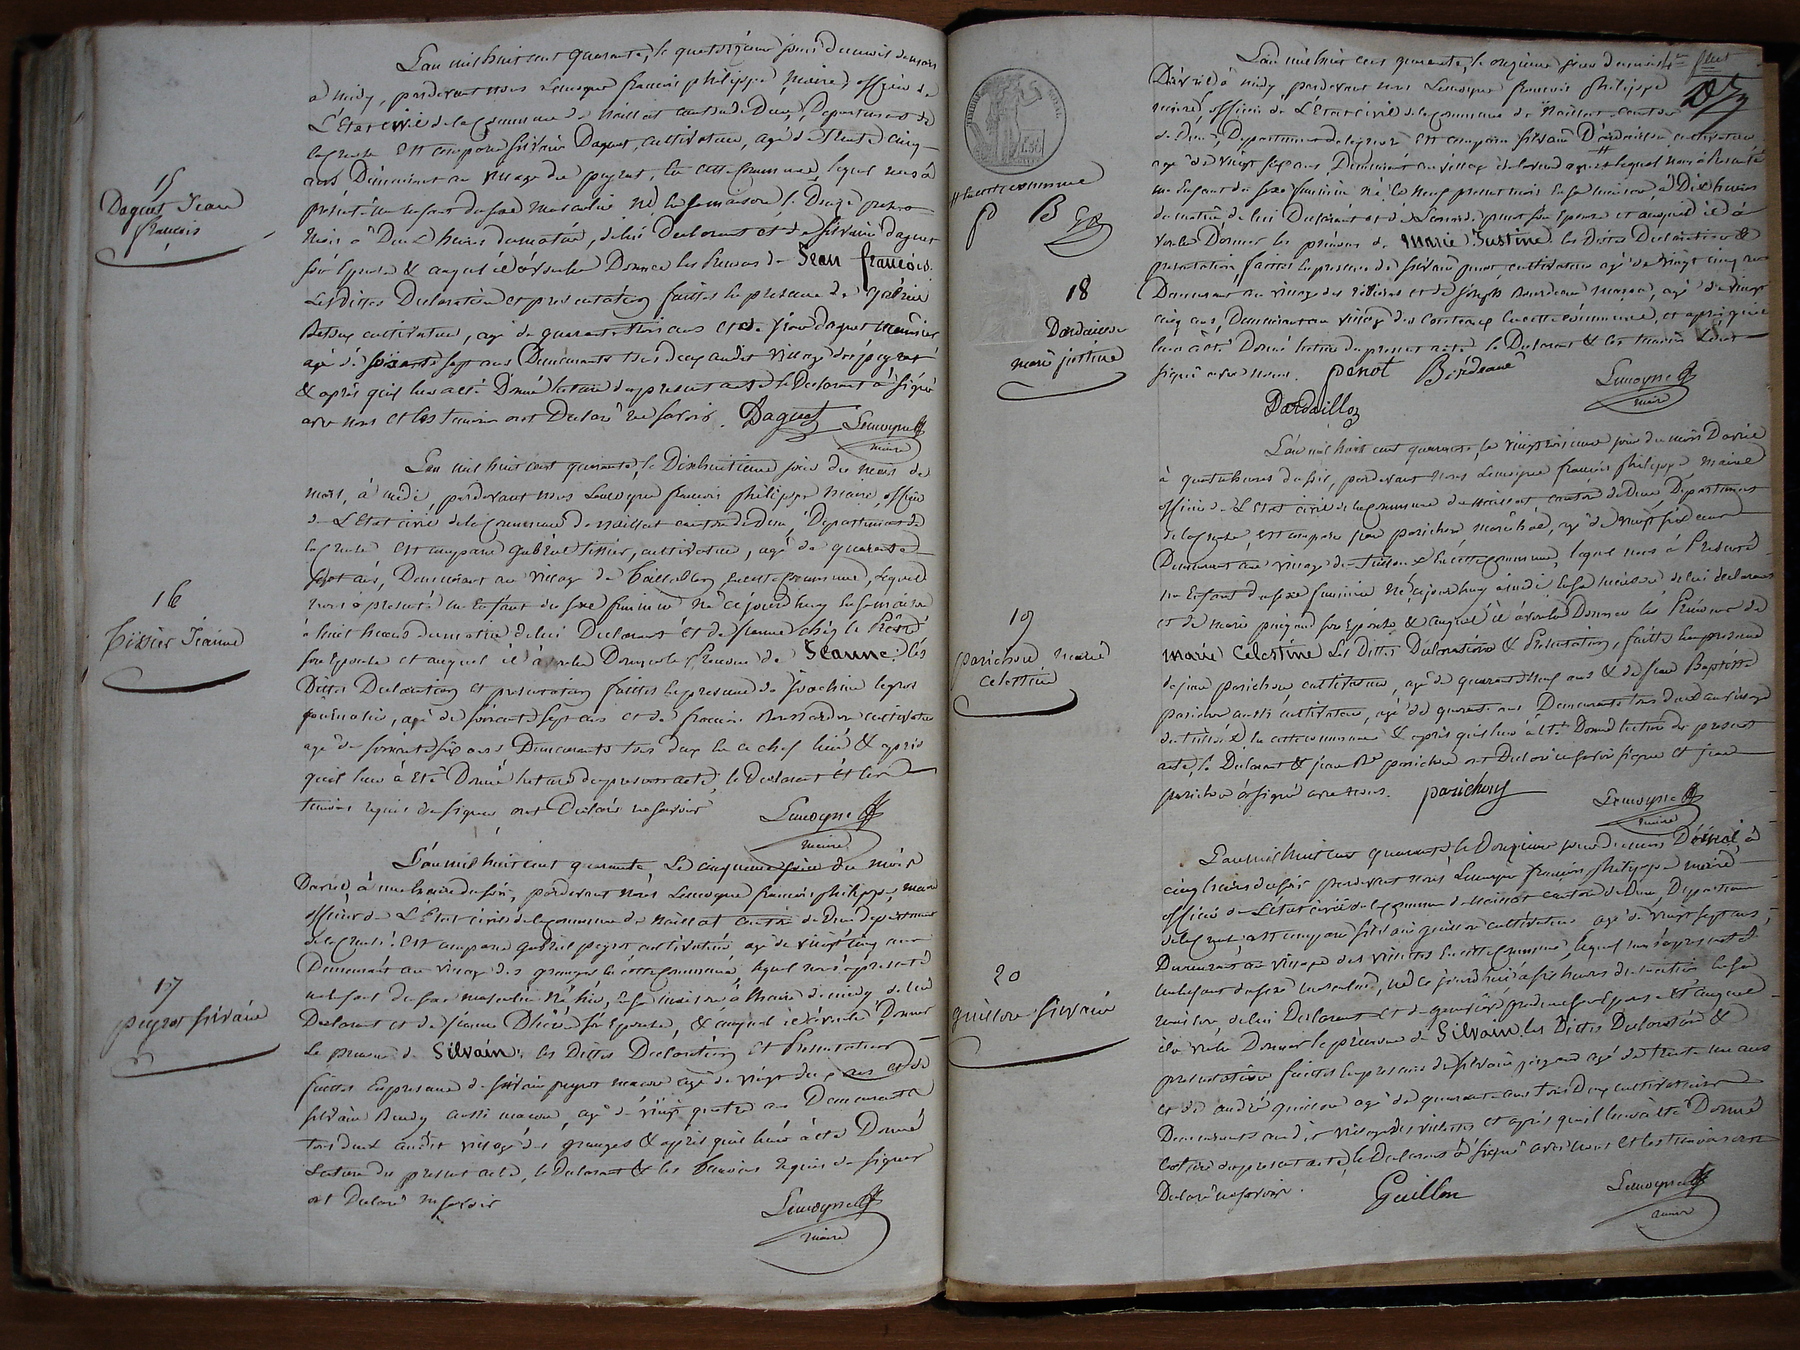 15
Daguet Jean
françois
L'an mil huit cent quarante, le quatorzième jour du mois de mars
à midy, pardevant nous Lemoyne françois philippe, maire, officier de
L'Etat civil de la Commune de Naillat canton de Dun, Département de
la Creuse est comparu Silvain Daguet, cultivateur, agé de trente cinq
ans Demeurant au village du peyrat, en cette Commune, lequel nous a
présenté un enfant du sexe masculin né en sa maison le Douze présent
mois à Deux heures du matin, de lui Déclarant et de Silvaine Daguet
son Epouse & auquel il a voulu Donner les Prénoms de Jean françois.
Lesdittes Déclaration et présentation faittes en présence de Gabriel
cultivateur, agé de quarante trois ans et de Daguet
agé de soixante sept ans Demeurants tous deux audit village du peyrat
& après qu'il leur a été Donné lecture du présent acte le Déclarant a signé
avec nous et les témoins ont Déclaré ne savoir. Daguet Lemoyne
maire
16
Tixier Jeanne
L'an mil huit cent quarante, le Dixhuitième jour du mois de
mars, à midi, pardevant nous Lemoyne françois philippe maire, officier
de L'Etat civil de la Commune de Naillat canton de Dun, Département de
la Creuse est comparu Gabriel tixier, cultivateur, agé de quarante
sept ans, Demeurant au village de en cette Commune, lequel
nous a présenté un Enfant du sexe féminin né cejourd'huy en sa maison
à huit heures du matin de lui Déclarant et de Jeanne
son Epouse et auquel il a voulu Donner le Prénom de Jeanne. Les
Dittes Déclaration et présentation faittes en présence de Joachim legros
journalier, agé de soixante sept ans et de françois cultivateur
agé de soixante six ans Demeurants tous deux en ce chef lieu & après
qu'il leur a été Donné lecture du présent acte, le Déclarant et les
témoins requis de signer ont Déclaré ne savoir
Lemoyne
maire
17
peyrot Silvain
L'an mil huit cent quarante, Le cinquième jour du mois
D'avril à une heure du soir, pardevant nous Lemoyne françois philippe, maire
officier de L'Etat civil de la Commune de Naillat canton de Dun département
de la Creuse. Est comparu Gabriel peyrot cultivateur agé de vingt cinq ans
Demeurant au village des granges en cette Commune, lequel nous a présenté
un enfant du sexe masculin Né hier, en sa maison à l'heure de midy de lui
Déclarant et de Jeanne son Epouse, & auquel il a voulu Donner
Le prénom de Silvain. les Dittes Déclaration Et Présentation
faittes En présence de Silvain peyrot maçon agé de vingt ans et de
Silvain aussi maçon, agé de vingt quatre ans Demeurants
tous deux audit village des granges & après qu'il leur a été Donné
Lecture du présent acte, le Déclarant & les témoins requis de signer
ont Déclaré ne savoir
Lemoyne
maire
4me feuillet
TIMBRE ROYAL
# en cette commune
18
Dardaillon
marie justine
L'an mil huit cent quarante, le onzième jour du mois
D'avril à midy pardevant nous Lemoyne françois philippe
maire, officier de L'Etat Civil de la commune de Naillat canton
de Dun, Département de la Creuse Est comparu Silvain Dardaillon cultivateur
agé de vingt six ans, Demeurant au village # lequel nous a présenté
un Enfant du sexe féminin né le neuf présent mois en sa maison à Dix heures
du matin de lui Déclarant et de Léonarde penot son Epouse et auquel il a
voulu Donner les prénoms de Marie Justine les Dittes Déclaration &
présentation faittes en présence de Silvain penot cultivateur agé de vingt cinq ans
Demeurant au village des et de Joseph Bourdeau maçon, agé de vingt
cinq ans, Demeurant au village des en cette commune, et après qu'il
leur a été Donné lecture du présent acte le Déclarant & les témoins l'ont
signé avec nous. penot Bordeaud
Dardaillon
Lemoyne
maire
19
parichou marie
celestine
L'an mil huit cent quarante le vingtroisième jour du mois D'avril
à quatre heures du soir, pardevant Nous Lemoyne françois philippe maire
officier de L'Etat civil de la commune de Naillat canton de Dun, Département
de la Creuse, est comparu jean parichou maréchal, agé de vingt six ans
Demeurant au village de en cette Commune, lequel nous a Présenté
un Enfant du sexe féminin né cejourd'huy à midi En sa maison de lui déclarant
et de marie son Epouse & auquel il a voulu Donner les Prénoms de
Marie Celestine Les Dittes Déclaration & Présentation, faittes En présence
de jean parichou cultivateur, agé de quarante neuf ans & de jean Baptiste
parichou aussi cultivateur, agé de quarante ans Demeurants tous deux au village
de en cette commune & après qu'il leur a été Donné lecture du présent
acte, le Déclarant & jean Bte parichou ont Déclaré ne savoir signer et jean
parichou a signé avec nous. parichou
Lemoyne
maire
20
guillon Silvain
L'an mil huit cent quarante le Douzième jour du mois D'avril à
cinq heures du soir pardevant nous Lemoyne françois philippe maire
officier de L'état civil de la Commune de Naillat canton de Dun, Département
de la Creuse est comparu Silvain guillon cultivateur agé de vingt sept ans,
Demeurant au village des en cette Commune, lequel nous a présenté
un enfant du sexe masculin, né ce jourd'hui à six heures du matin En sa
maison, de lui Déclarant Et de son Epouse Et auquel
il a voulu Donner le prénom de Silvain. Les Dittes Déclaration &
présentation faittes en présence de Silvain agé de trente un ans
et de andré guillon agé de quarante ans tous Deux cultivateurs
Demeurants audit village des et après qu'il leur a été Donné
lecture du présent acte, le Déclarant a signé avec nous Et les témoins ont
Déclaré ne savoir. Guillon
Lemoyne
maire